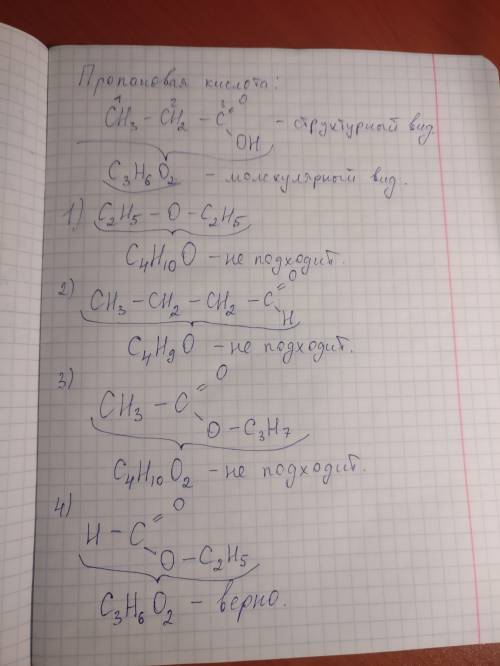 Пропановая кислота:
1 2 3 O
CH₃ – CH₂ – C – структурный вид
OH
C₃H₆O₂ – молекулярный вид.
1) C₂H₅ – O – C₂H₅
C₄H₁₀O – не подходит.
2) CH₃ – CH₂ – CH₂ – C = O
H
C₄H₉O – не подходит.
3) O
CH₃ – C
O – C₃H₇
C₄H₁₀O₂ – не подходит.
4) O
H – C
O – C₂H₅
C₃H₆O₂ – верно.